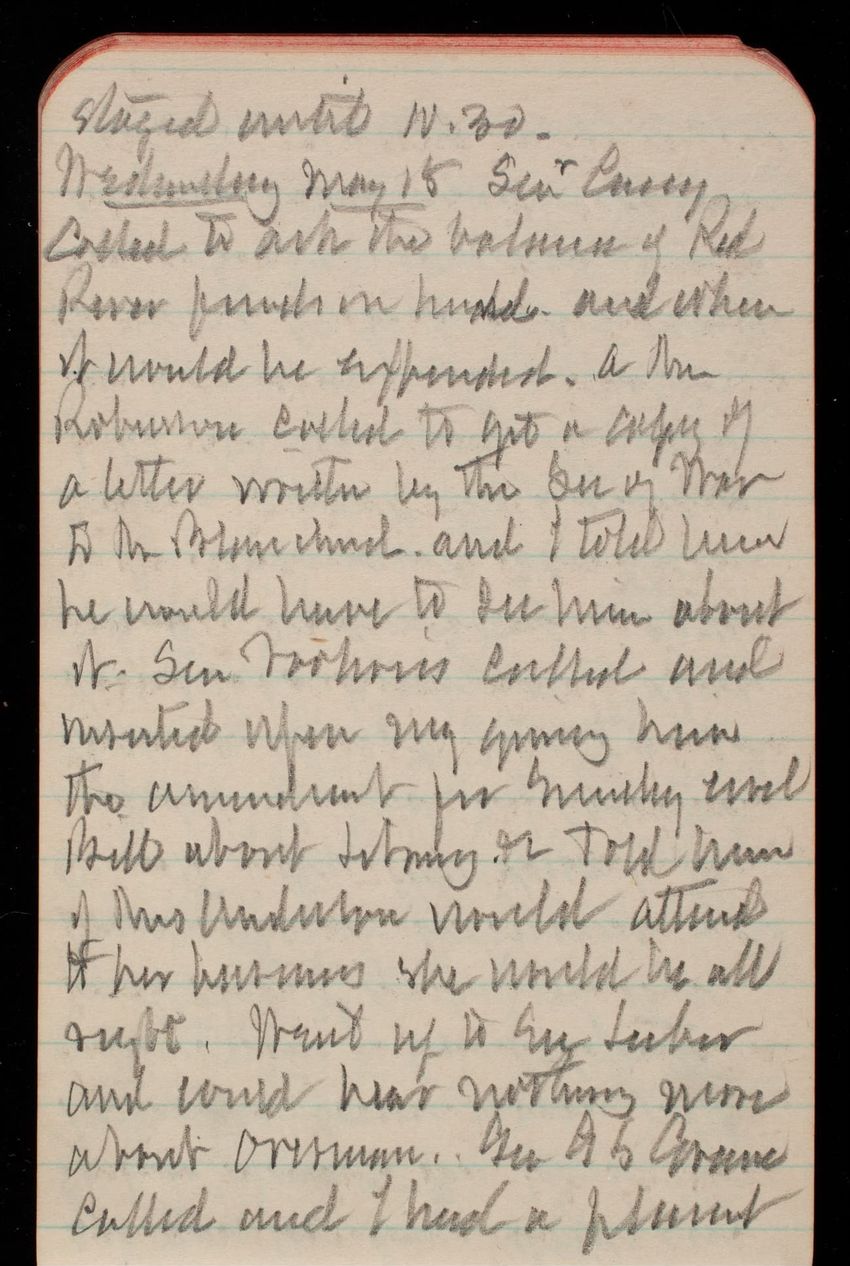 stayed until 10.30.
Wednesday May 18 Senr Casey
Called to ask the balance of Red
River funds on hand. and when
it would be expended. A Mr
Roberson called to get a copy of
a letter written by the Sec of War
to Mr Blanchard. and I told him
he would have to see him about
it. Sen Voohries called and
insisted upon my giving him
the amendment for Sundry civil
Bill about Library &c Told him
if Mrs Anderson would attend
to her business she would be all
right. Went up to
and could hear nothing more
about Overman.. Gen Grave
called and I had a plesent